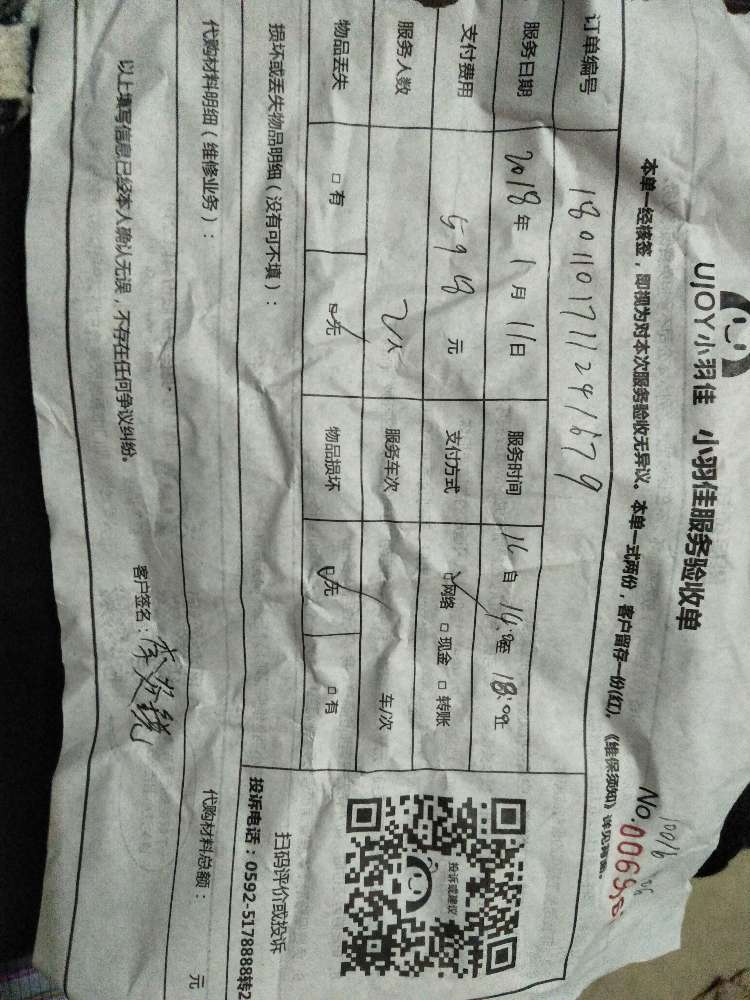 UJOY小羽佳 小羽佳服务验收单
No.
本单一经核签，即视为对本次服务验收无异议。本单一式两份，客户留存一份(红)，《维保须知》详见
订单编号
服务日期 2018年1月11日 服务时间 自 至 18:00止
支付费用 598元 支付方式 ☑网络 □现金 □转账
服务人数 2人 服务车次 车/次
物品丢失 □有 ☑无 物品损坏 ☑无 □有
损坏或丢失物品明细（没有可不填）：
代购材料明细（维修业务）：
代购材料总额： 元
以上填写信息已经本人确认无误，不存在任何争议纠纷。
客户签名：
投诉或建议
扫码评价或投诉
投诉电话：0592-5178888转2